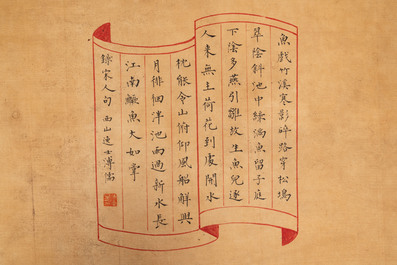 魚戲竹溪寒影碎路穿松塢
翠陰斜池中綠滿魚留子庭
下陰多燕引雛故生魚兒逐
人來無主荷花到處開水
枕能令山俯仰風船解與
月徘徊浑池雨過新水長
江南鱖魚大如掌
錄宋人句 西山逸士溥儒